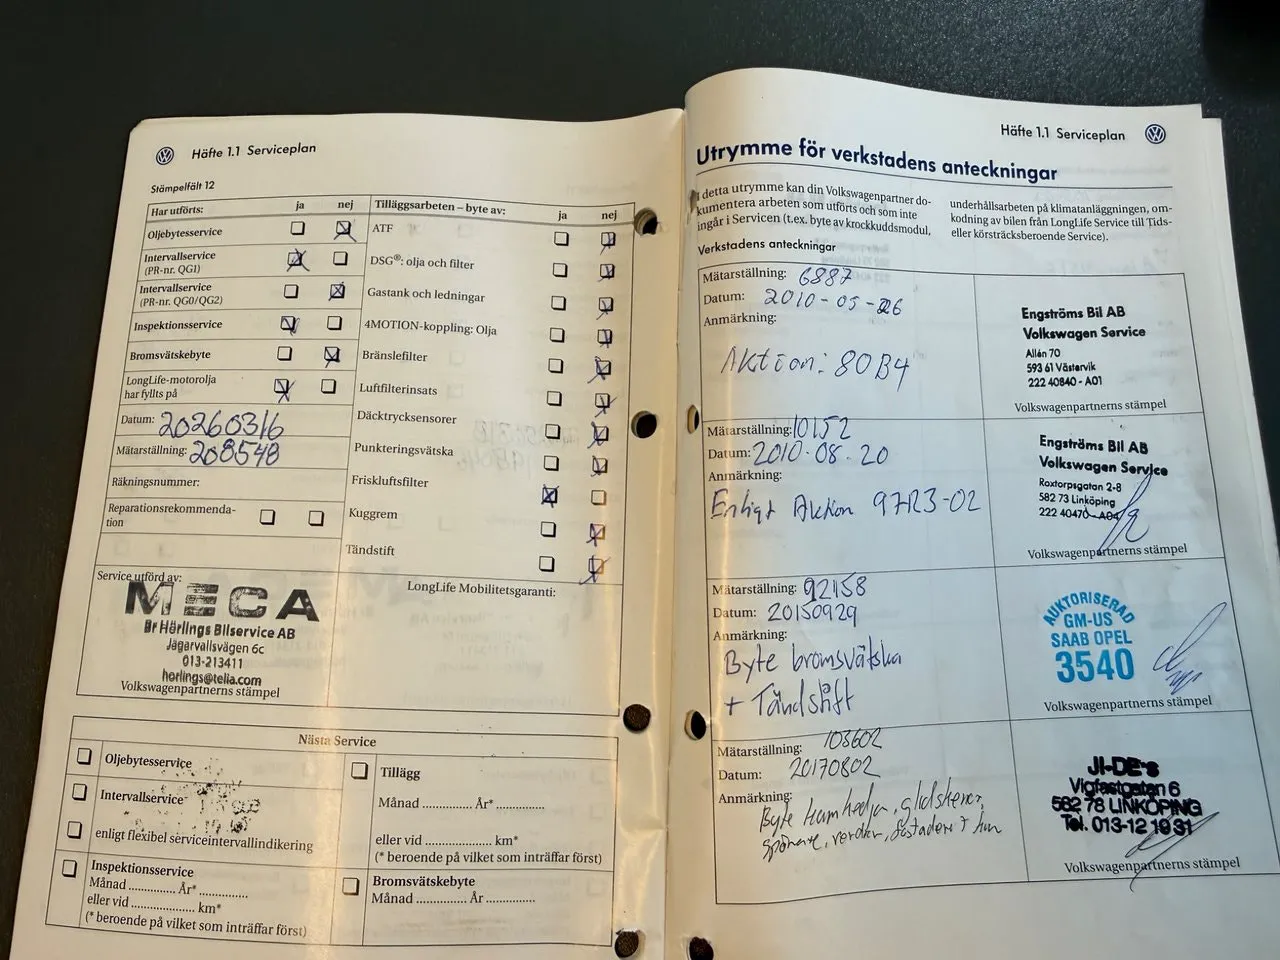 Häfte 1.1 Serviceplan
Stämpelfält 12
Har utförts: ja nej
Oljebytesservice
Intervallservice
(PR-nr. QG1)
Intervallservice
(PR-nr. QG0/QG2)
Inspektionsservice
Bromsvätskebyte
LongLife-motorolja
har fyllts på
Datum: 20260316
Mätarställning: 208548
Räkningsnummer:
Reparationsrekommenda-
tion
Service utförd av:
MECA
Br Hörlings Bilservice AB
Jägarvallsvägen 6c
013-213411
horlings@telia.com
Volkswagenpartnerns stämpel
Tilläggsarbeten – byte av: ja nej
ATF
DSG®: olja och filter
Gastank och ledningar
4MOTION-koppling: Olja
Bränslefilter
Luftfilterinsats
Däcktrycksensorer
Punkteringsvätska
Friskluftsfilter
Kuggrem
Tändstift
LongLife Mobilitetsgaranti:
Nästa Service
Oljebytesservice
Intervallservice
enligt flexibel serviceintervallindikering
Inspektionsservice
Månad .............. År* ..............
eller vid .................... km*
(* beroende på vilket som inträffar först)
Tillägg
Månad .............. År* ..............
eller vid .................... km*
(* beroende på vilket som inträffar först)
Bromsvätskebyte
Månad .............. År ..............
Häfte 1.1 Serviceplan
Utrymme för verkstadens anteckningar
I detta utrymme kan din Volkswagenpartner do-
kumentera arbeten som utförts och som inte
ingår i Servicen (t.ex. byte av krockkuddsmodul,
underhållsarbeten på klimatanläggningen, om-
kodning av bilen från LongLife Service till Tids-
eller körsträcksberoende Service).
Verkstadens anteckningar
Mätarställning: 6887
Datum: 2010-05-26
Anmärkning:
Aktion: 80B4
Engströms Bil AB
Volkswagen Service
Allén 70
593 61 Västervik
222 40840 - A01
Volkswagenpartnerns stämpel
Mätarställning: 10152
Datum: 2010-08-20
Anmärkning:
Enligt Aktion 97R3-02
Engströms Bil AB
Volkswagen Service
Roxtorpsgatan 2-8
582 73 Linköping
222 40470 - A04
Volkswagenpartnerns stämpel
Mätarställning: 92158
Datum: 20150929
Anmärkning:
Byte bromsvätska
+ Tändstift
AUKTORISERAD
GM-US
SAAB OPEL
3540
Volkswagenpartnerns stämpel
Mätarställning: 103602
Datum: 20170802
Anmärkning:
Byte kamkedja, glidskenor,
spännare,
JI-DE's
Vigfastgatan 6
582 78 LINKÖPING
Tel. 013-12 19 31
Volkswagenpartnerns stämpel